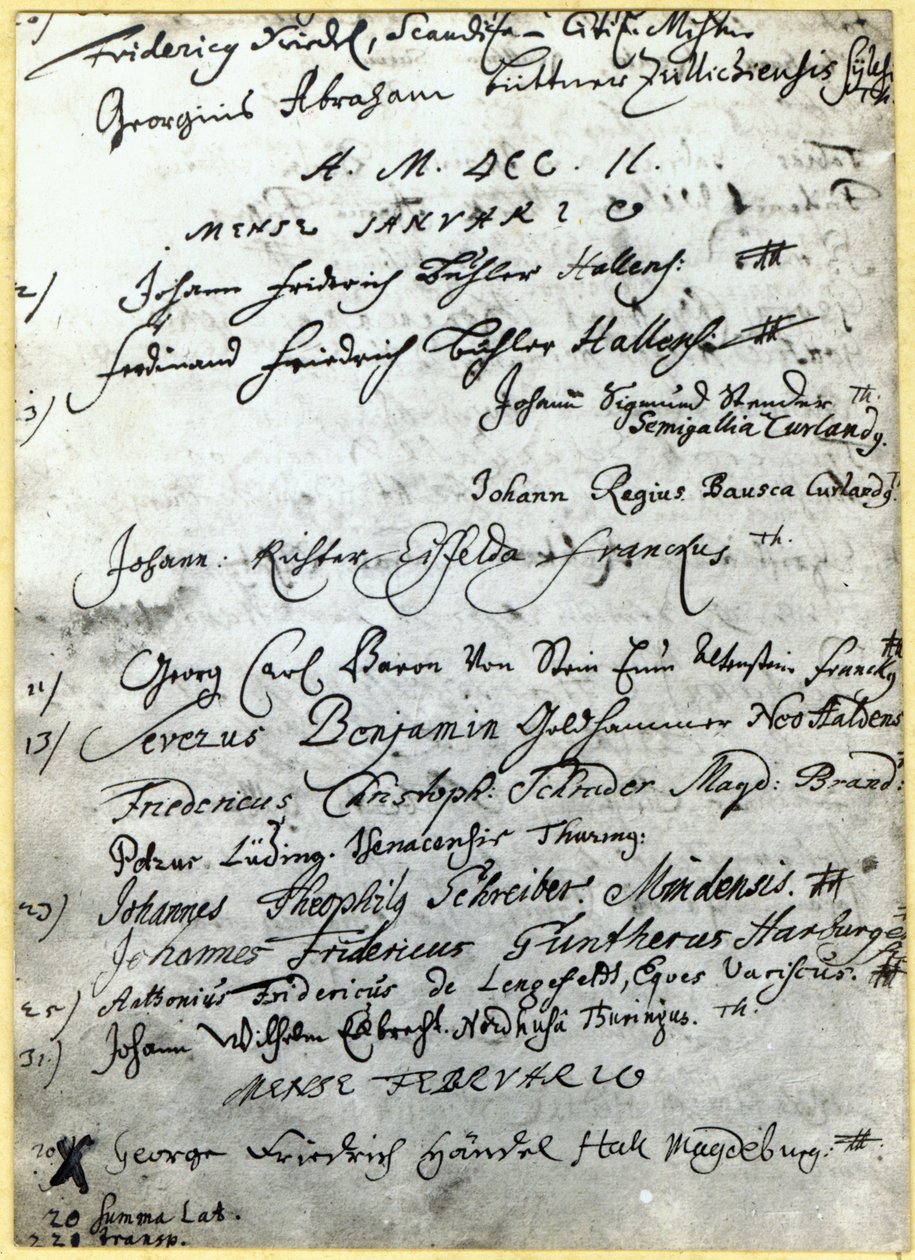 Fridericq Kriebel, Scandise- Citif. Mistu
Georgius Abraham Büttner Züllichiensis Siles.
A. M. DCC. II.
MENSE IANVARIO
2) Johann Friderich Bühler Hallens: #
Ferdinand Friedrich Bühler Hallens: #
3) Johann Sigmund Stender Th.
Semigallia Curlandq.
Johann Regius Bausca Curlandq. T.
Johann: Richter Eisfelda Franckus Th.
11) Georg Carl Baron Von Stein Zum Altenstein Franckq #
13) Severus Benjamin Goldhammer Neo Haldens
Fridericus Christoph: Schrader Magd: Brand:
Petrus Lüding. Isenacensis Thuring:
23) Johannes Theophilq Schreiber. Mindensis. #
Johannes Fridericus Guntherus Harburge
25) Anthonius Fridericus de Lengefeldt, Eques Variscus. #
31.) Johann Wilhelm Eckbrecht. Nordhusâ Thuringus. Th.
MENSE FEBRVARIO
20 X George Friedrich Händel Hall Magdeburg: #
20 Summa Lat.
221 transp.